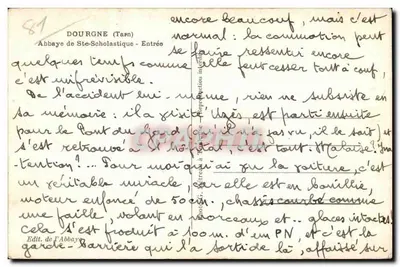 81
DOURGNE (Tarn)
Abbaye de Ste-Scholastique - Entrée
encore beaucoup, mais c'est
normal : la commotion peut
se faire ressentir encore
quelques temps comme elle peut cesser tout à coup,
c'est imprévisible.
De l'accident lui-même, rien ne subsiste en
sa mémoire : il a visité Uzès, est parti ensuite
pour le Pont du Gard, qu'il n'a pas vu, il le sait, et
s'est retrouvé à l'hôpital, c'est tout. Malaise? Inat-
tention?... Pour moi qui ai vu la voiture, c'est
un véritable miracle, car elle est en bouillie,
moteur enfoncé de 50 cm., chassis courbé comme
une faille, volant en morceaux et... glaces intactes.
Cela s'est produit à 100m. d'un PN, et c'est la
garde-barrière qui l'a sorti de là, affaissé sur
Edit. de l'Abbaye